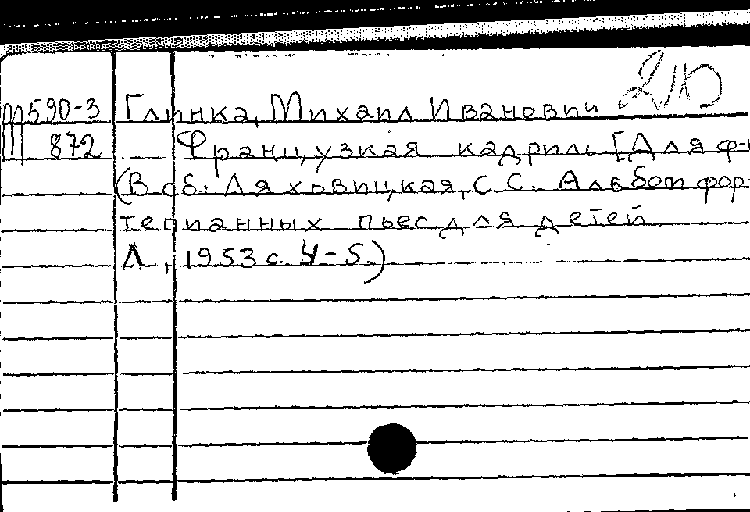 2/1Б
М590-3 Глинка, Михаил Иванович
872 Французская кадриль [Для ф-
(В сб. Ляховицкая, С.С. Альбом фор-
тепианных пьес для детей
Л., 1953 с. 4-5.)